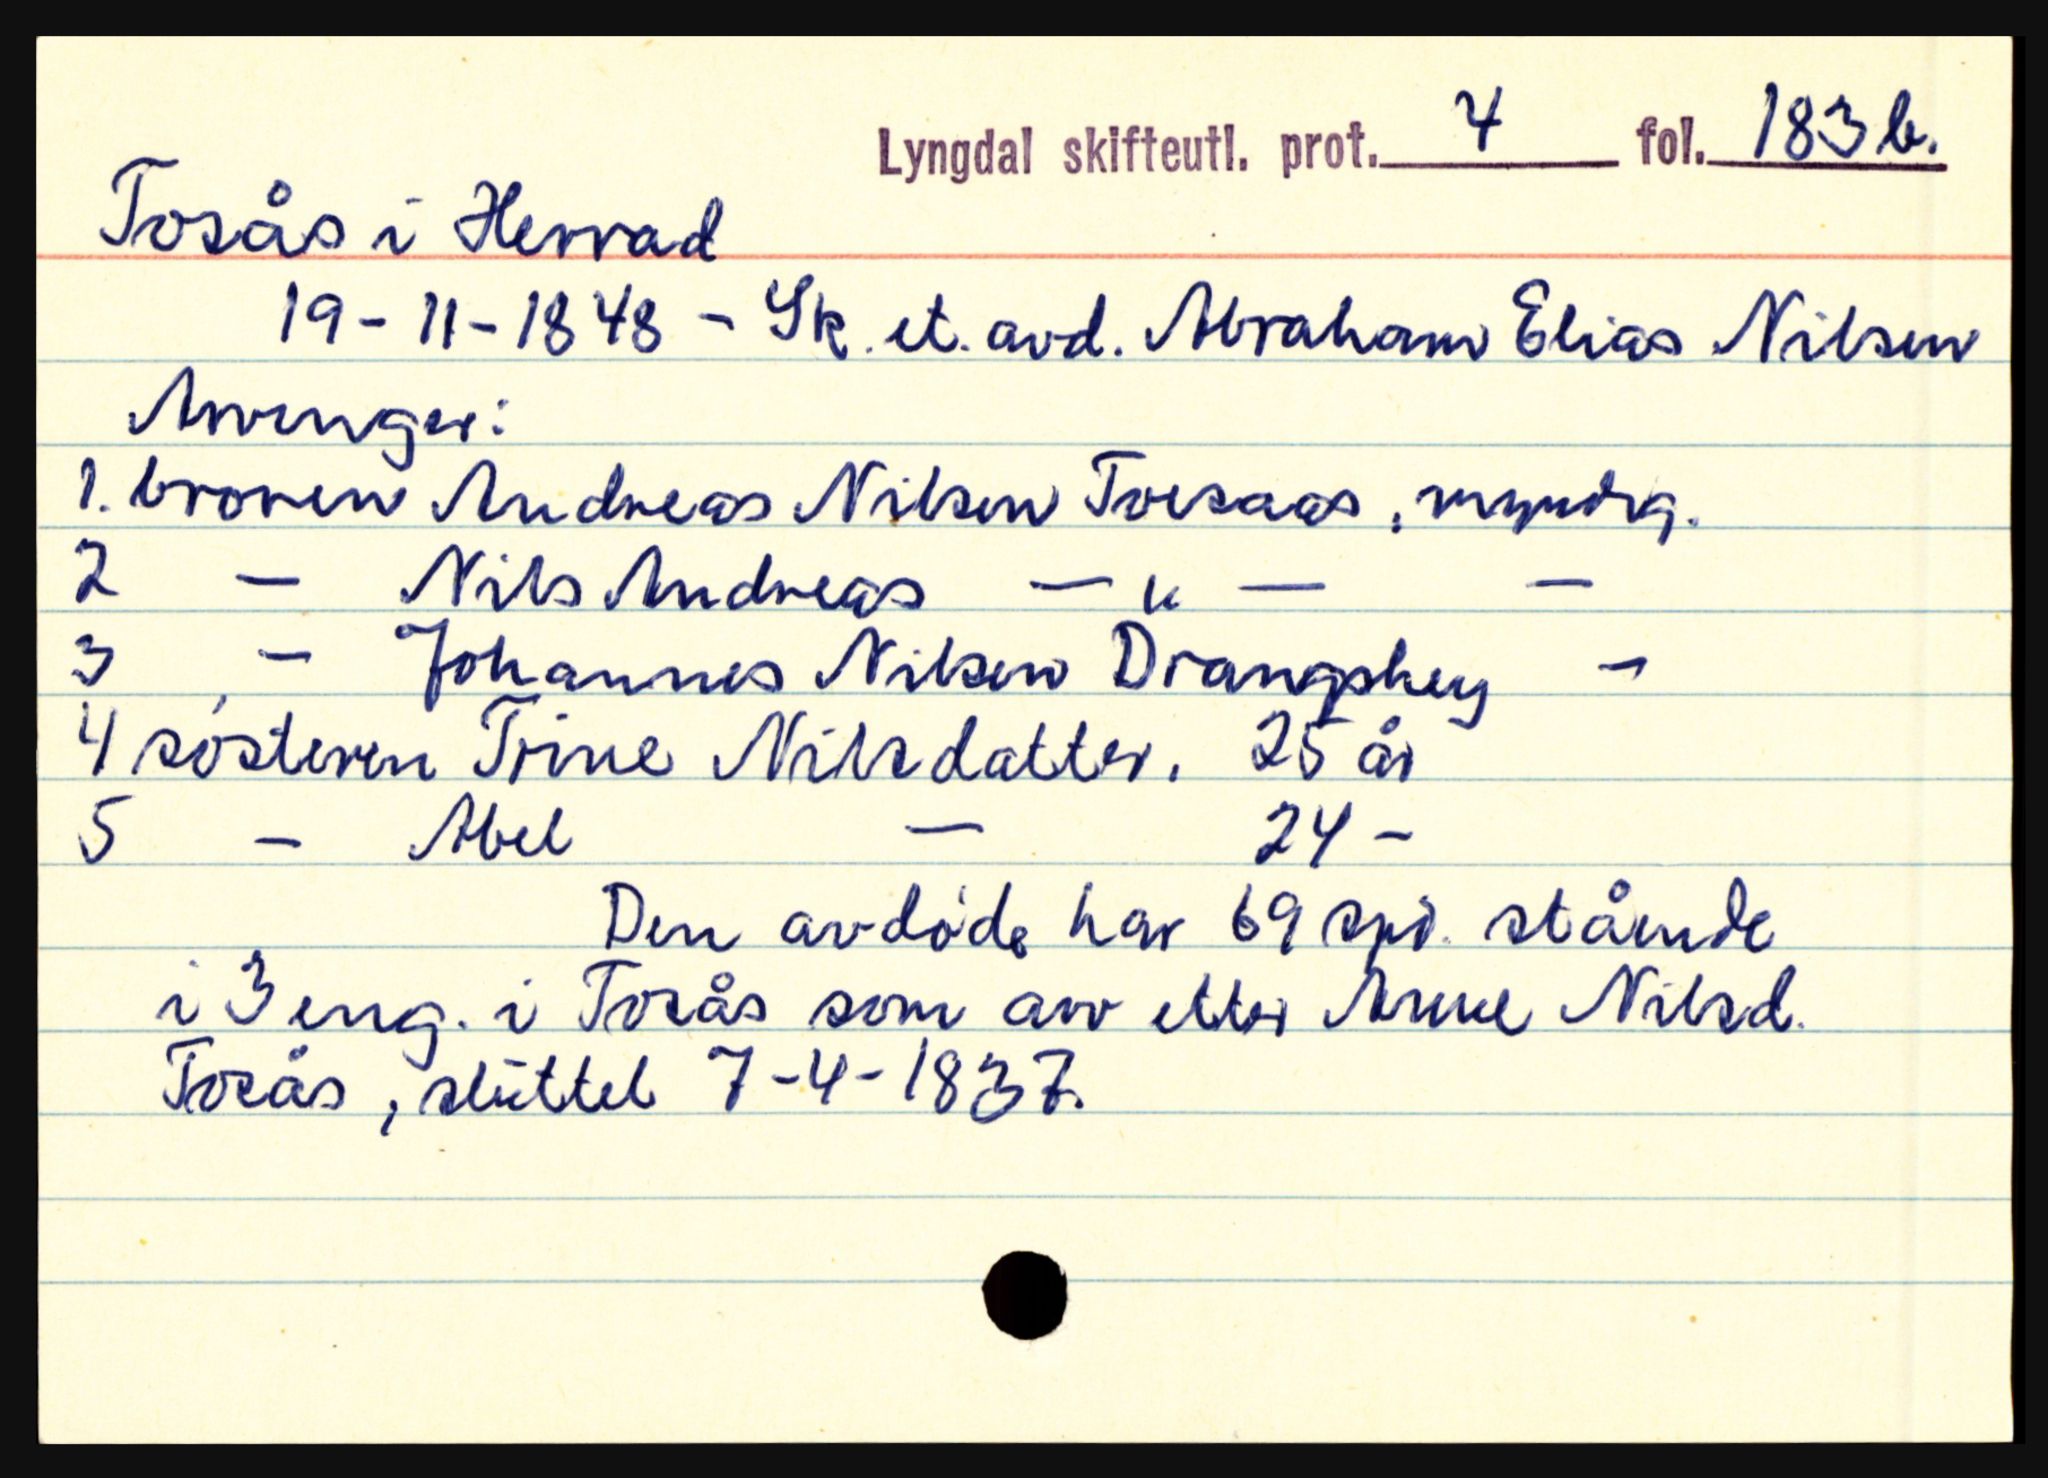 Lyngdal skifteutl. prot. 4 fol. 183 b.
Tosås i Herrad
19-11-1848 - Sk. et. avd. Abraham Elias Nilsen
Arvinger:
1. broren Andreas Nilsen Toesaas, myndig.
2 - Nils Andreas - " - -
3 - Johannes Nilsen Drangshey -
4 søsteren Trine Nilsdatter. 25 år
5 - Abel - 24 -
Den avdøde har 69 spd. stående
i 3 eng. i Tosås som arv etter Anne Nilsd.
Tosås, sluttet 7-4-1837.